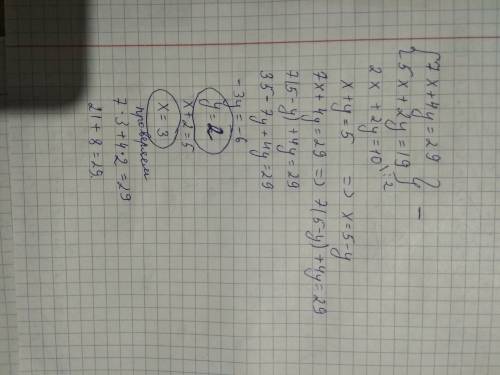 {7x+4y=29
{5x+2y=19 } -
2x+2y=10 \:2
x+y=5 => x=5-y
7x+4y=29 => 7(5-y)+4y=29
7(5-y)+4y=29
35-7y+4y=29
-3y=-6
y=2
x+2=5
x=3
проверяем
7·3+4·2=29
21+8=29